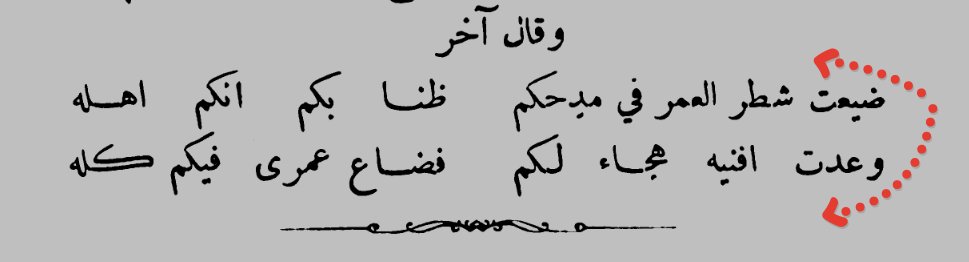 وقال آخر
ضيعت شطر العمر في مدحكم ظنا بكم انكم اهله
وعدت افنيه هجاء لكم فضاع عمرى فيكم كله